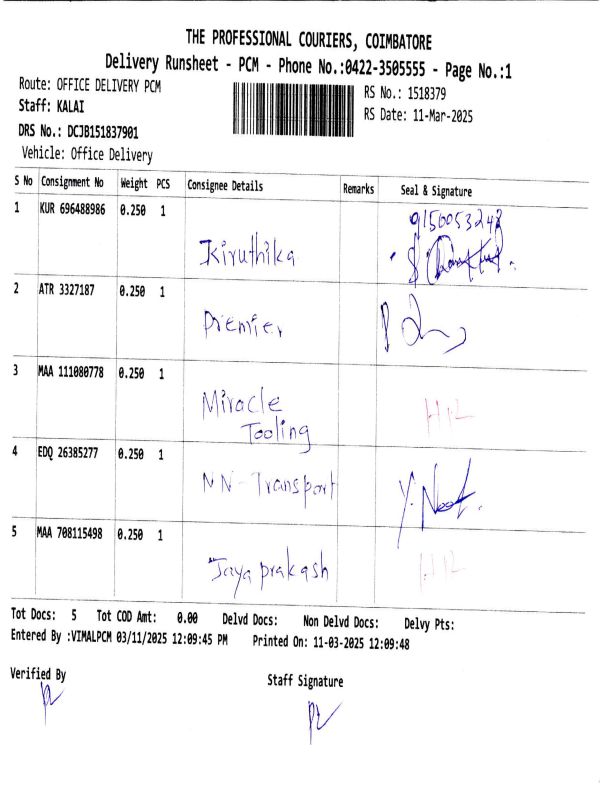 THE PROFESSIONAL COURIERS, COIMBATORE
Delivery Runsheet - PCM - Phone No.:0422-3505555 - Page No.:1
Route: OFFICE DELIVERY PCM
RS No.: 1518379
Staff: KALAI
RS Date: 11-Mar-2025
DRS No.: DCJB151837901
Vehicle: Office Delivery
S No Consignment No Weight PCS Consignee Details Remarks Seal & Signature
1 KUR 696488986 0.250 1
9150053248
Kiruthika
2 ATR 3327187 0.250 1
Premier
3 MAA 111080778 0.250 1
Miracle
Tooling
4 EDQ 26385277 0.250 1
NN-Transport
5 MAA 708115498 0.250 1
Jaya prakash
Tot Docs: 5 Tot COD Amt: 0.00 Delvd Docs: Non Delvd Docs: Delvy Pts:
Entered By :VIMALPCM 03/11/2025 12:09:45 PM Printed On: 11-03-2025 12:09:48
Verified By
Staff Signature